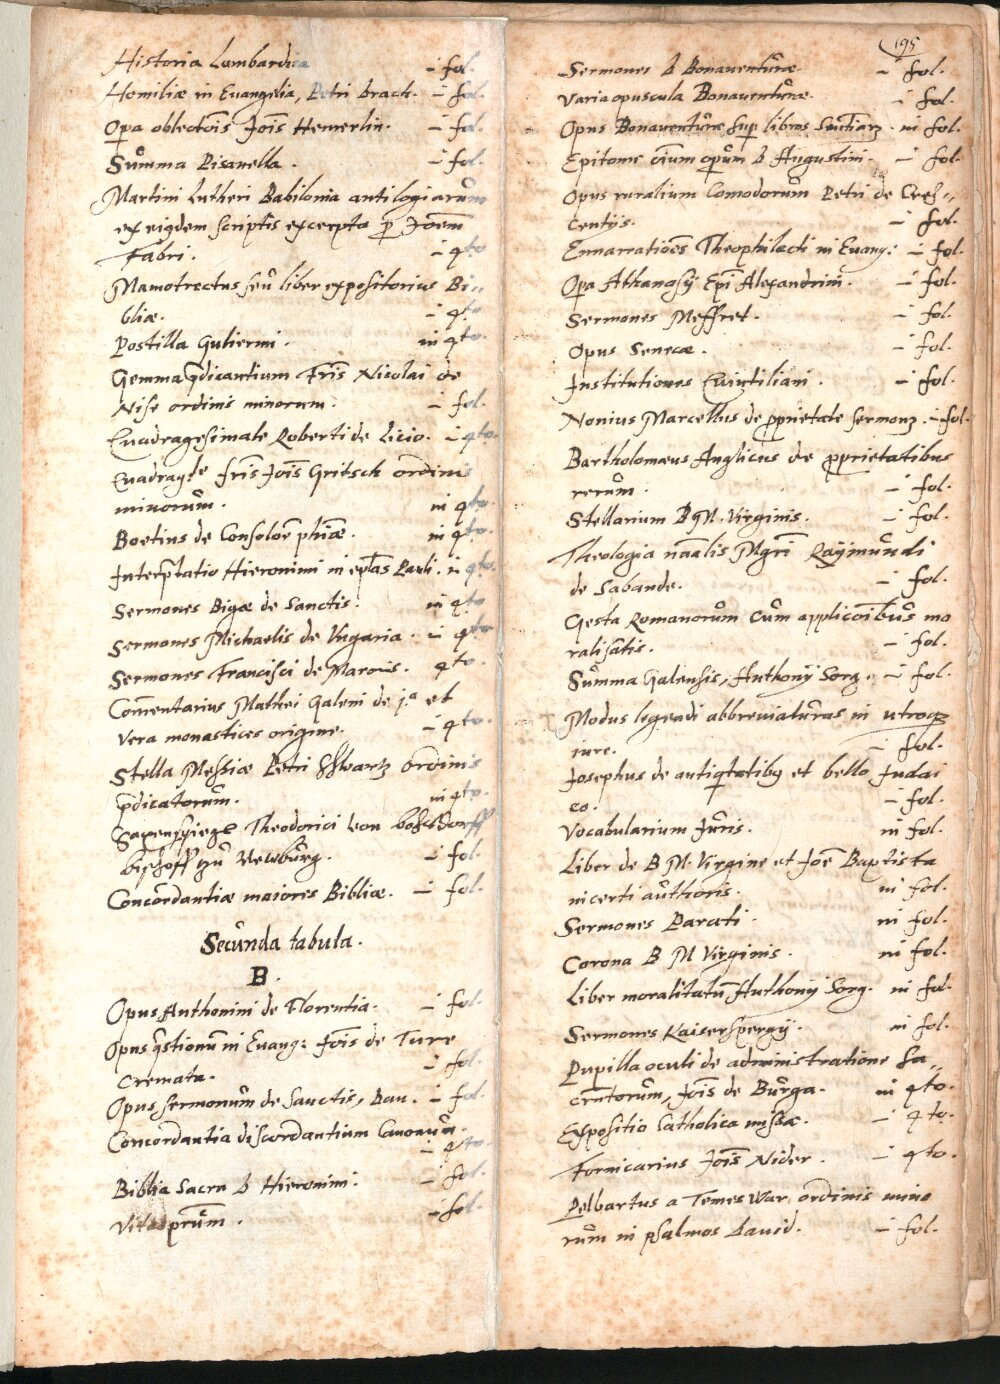 Historia Lombardica in fol.
Homiliæ in Euangelia, Petri Drach. in fol.
Opa oblectois Jois Hemerlin. in fol.
Summa Pisanella. in fol.
Martini Lutheri Babilonia antilogiarum
ex eiqdem scriptis excerpta p Joem
Fabri. in qto
Mamotrectus seu liber expositorius Bi,,
bliæ. in qto
Postilla Guliermi. in qto.
Gemma pdicantium Fris Nicolai de
Nise ordinis minorum. in fol.
Quadragesimale Roberti de Licio. in qto.
Quadragle fris Jois Gritsch ordinis
minorum. in qto.
Boetius de Consoloe phiæ. in qto.
Interptatio Hieronimi in eplas Pauli. in qto.
Sermones Bigæ de Sanctis. in qto
Sermones Michaelis de Vngaria. in qto
Sermones Francisci de Maronis. qto.
Comentarius Mathei Galeni de ja et
vera monastices origine. in qto.
Stella Messiæ Petri Schwartz ordinis
pdicatorum. in qto.
Saxenspiegel Theodorici von bohsdorff
bischoff zu Newburg. in fol.
Concordantiæ maiores Bibliæ. in fol.
Secunda tabula.
B.
Opus Anthonini de Florentia. in fol.
Opus qstionum in Euang: Jois de Turre
cremata. in fol.
Opus sermonum de Sanctis, Dau. in fol.
Concordantia discordantium Canonum.
in qto.
Biblia Sacra D Hieronimi. in fol.
Vitas prum. in fol.
195
Sermones D Bonauenturæ. in fol.
Varia opuscula Bonauenturæ. in fol.
Opus Bonauenturæ sup libros Sentiarz. in fol.
Epitome oium operum D Augustini. in fol.
Opus ruralium Comodorum Petri de Cres,,
centijs. in fol.
Ennarratioes Theophilacti in Euang: in fol.
Opa Athanasij Epi Alexandrini. in fol.
Sermones Meffret. in fol.
Opus Senecæ. in fol.
Institutiones Quintiliani. in fol.
Nonius Marcellus de pprietate sermonz. in fol.
Bartholomæus Anglicus de pprietatibus
rerum. in fol.
Stellarium B M. Virginis. in fol.
Theologia naalis Mgri Raijmundi
de Sabande. in fol.
Gesta Romanorum cum applicoibus mo
ralisatis. in fol.
Summa Galensis, Anthonij Sorg. in fol.
Modus legendi abbreviaturas in utroq
iure. in fol.
Josephus de antiqtatibq et bello Judai
co. in fol.
Vocabularium Juris. in fol.
Liber de B M. Virgine et Joe Baptista
incerti authoris. in fol.
Sermones Parati. in fol.
Corona B M Virginis. in fol.
Liber moralitatum Anthonij Sorg. in fol.
Sermones Kaiserspergij. in fol.
Pupilla oculi de administratione Sa,,
crmtorum, Jois de Burga. in qto.
Expositio Catholica missæ. in qto.
Formicarius Jois Nider. in qto.
Pelbartus a Temeswar ordinis mino
rum in psalmos Dauid. in fol.